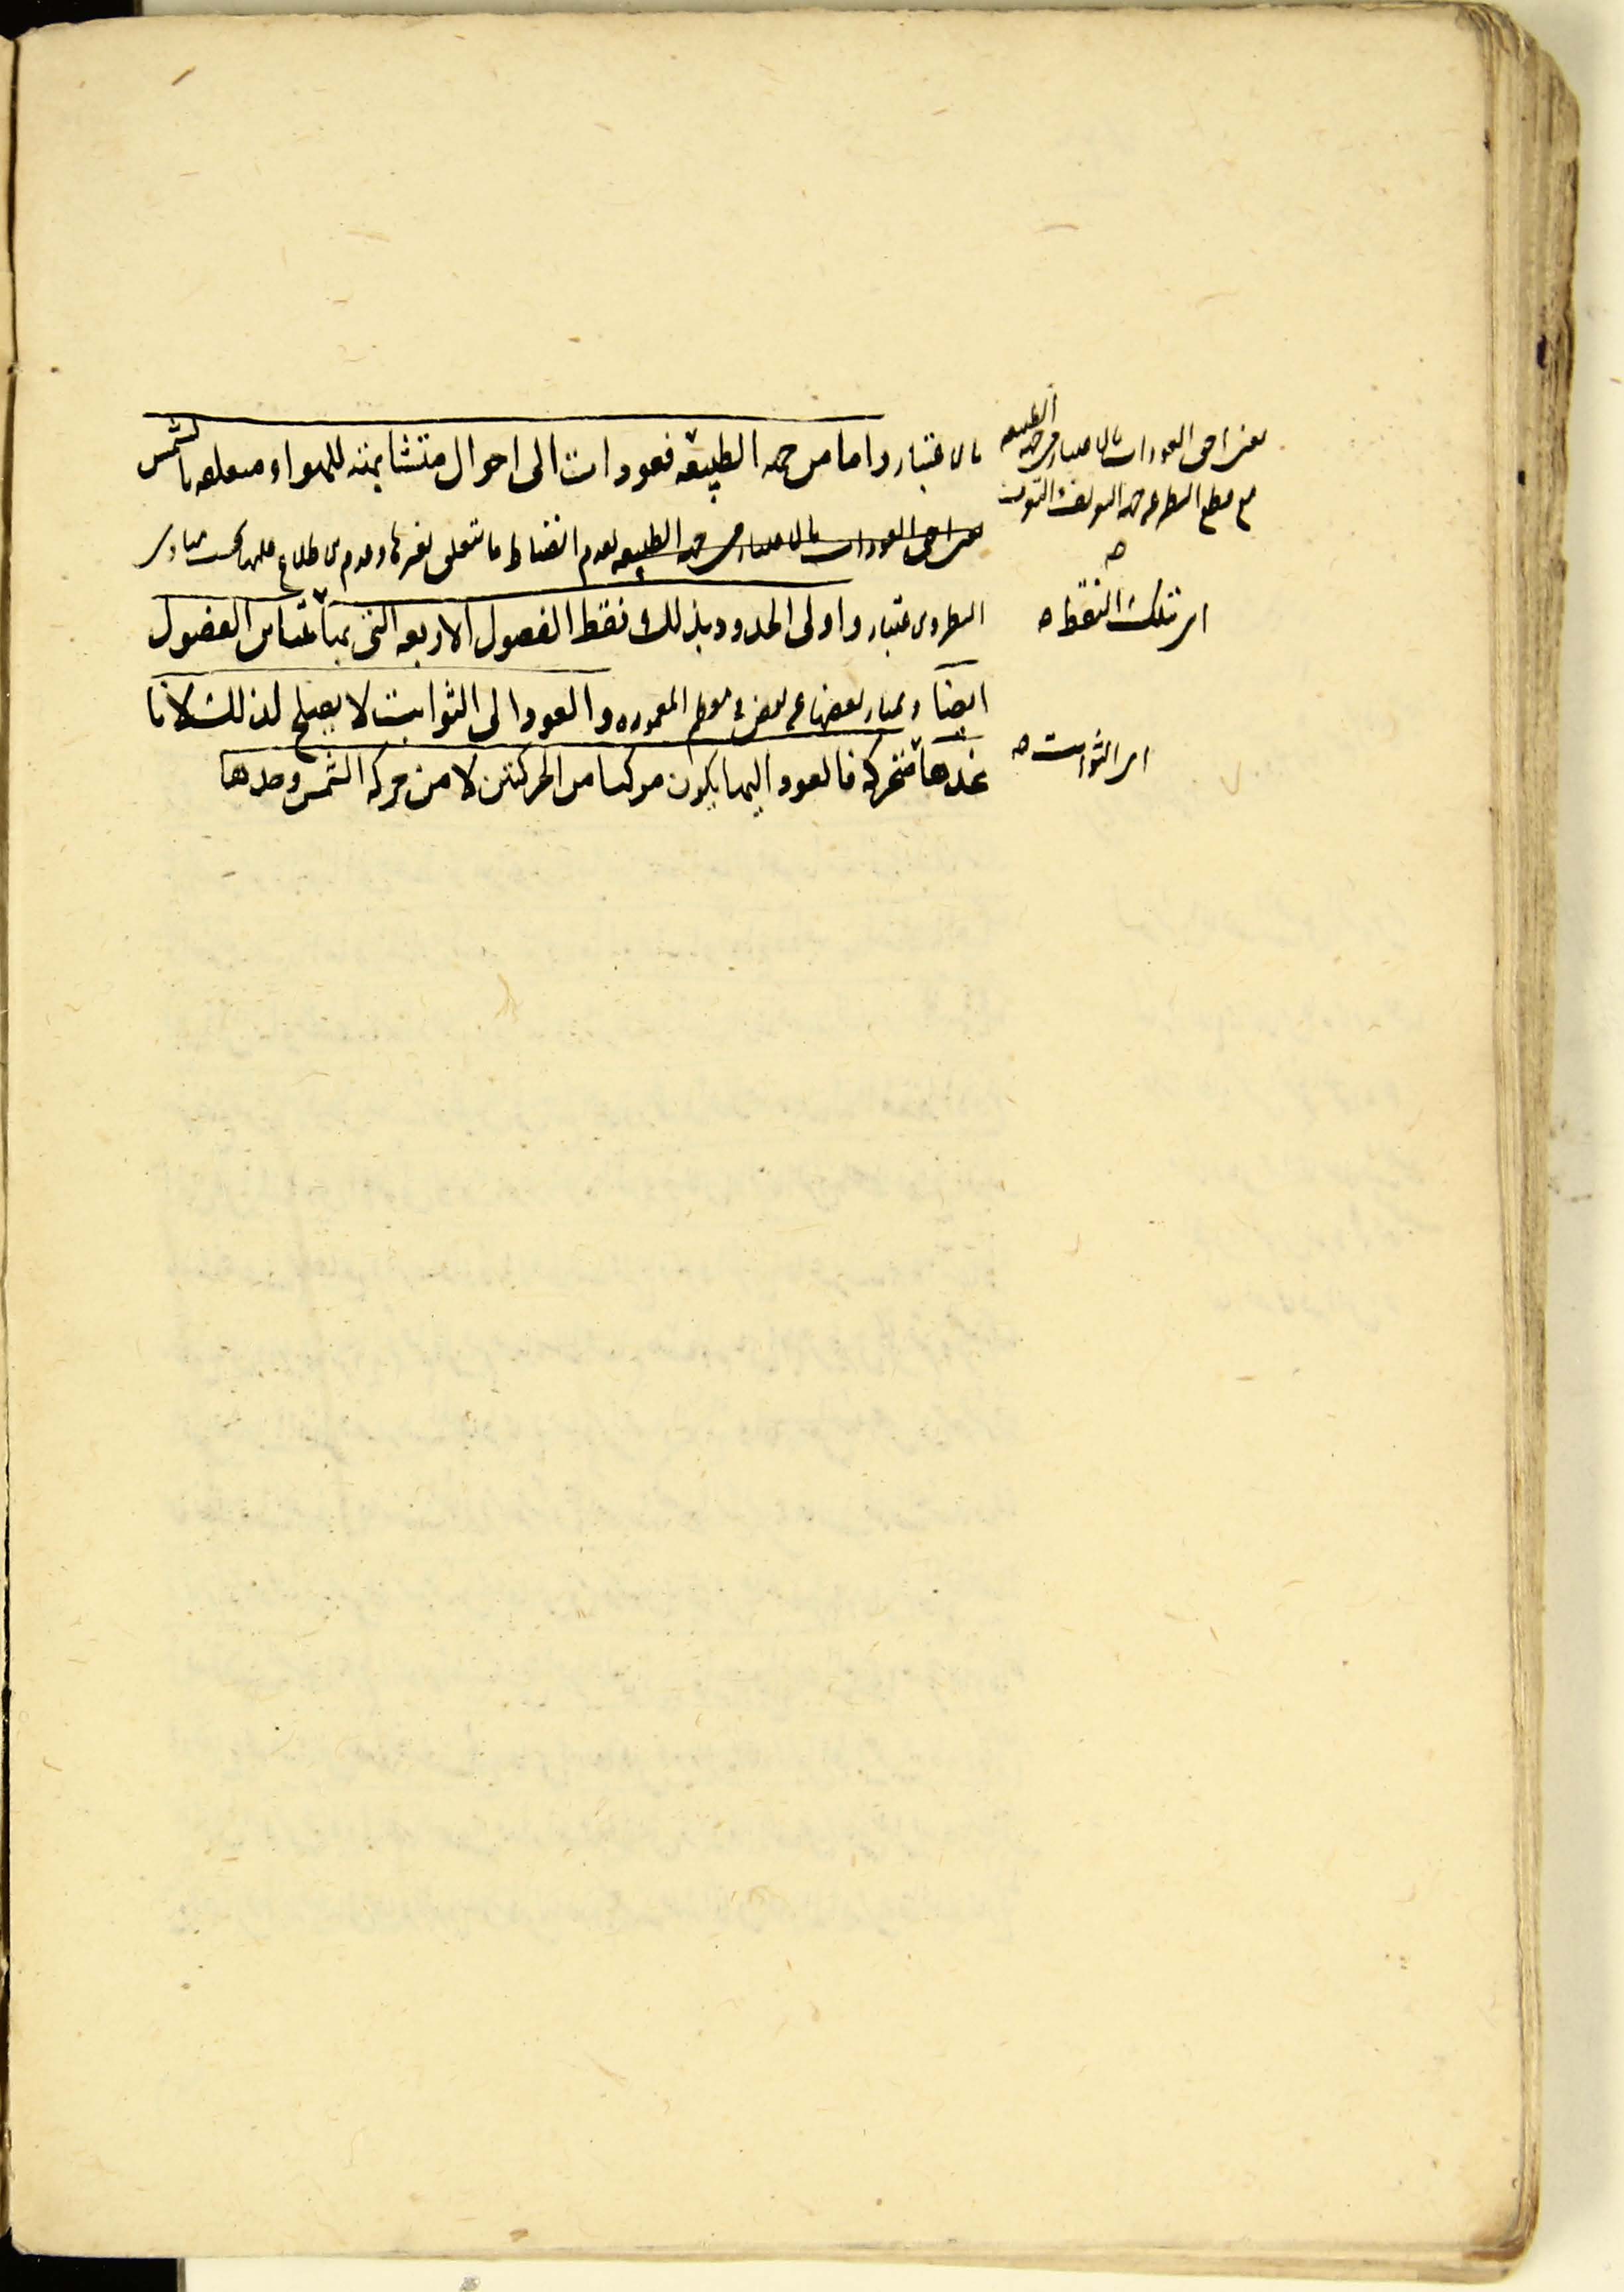 بالاعتبار واما من جهه الطبيعه فعودات الى احوال متشابهة للهواء متعلقه بالشمس
احق العودات بالاعتبار من جهه الطبيعه لعدم انضباط ما تتعلق بغيرها وعدم الاطلاع عليها بحسب مبادى
النظر والاعتبار واولى الحدود بذلك نقط الفصول الاربعه التى بها تمتاز الفصول
ايضا وتمتاز بعضها عن بعض فى معظم المعموره والعود الى الثوابت لا يصلح لذلك لانا
نجدها متحركه فالعود اليها يكون مركبا من الحركتين لا من حركه الشمس وحدها
يعنى احق العودات بالاعتبار من جهه الطبيعه
مع قطع النظر عن جهه
اى تلك النقط
اى الثوابت